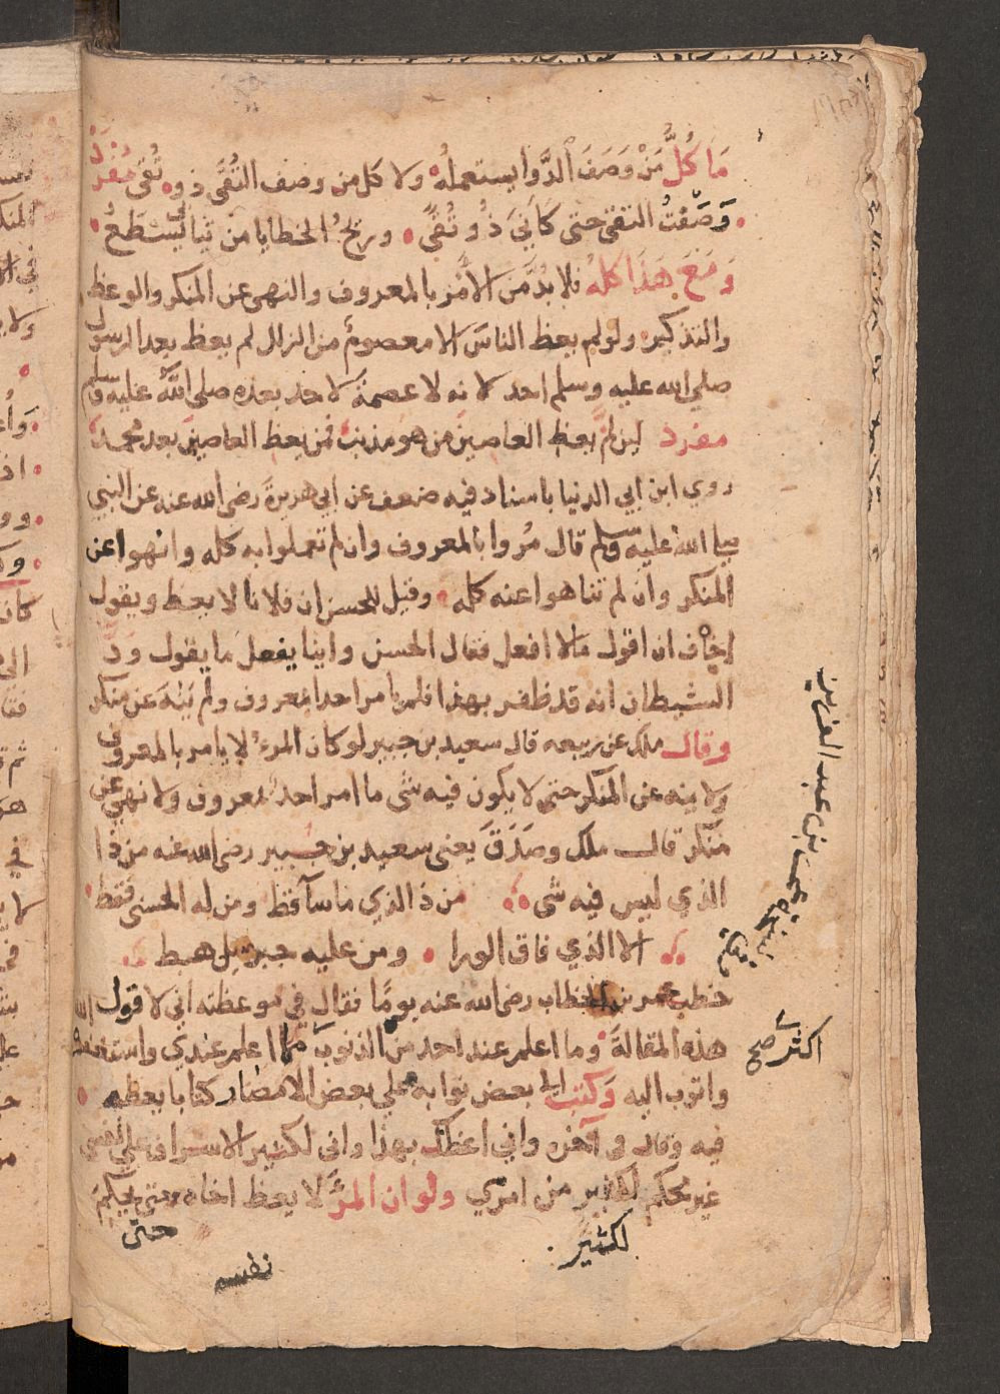 ما كل من وصف الدوا يستعمله ولا كل من وصف التقى ذو تقى مفرد
وصفت التقى حتى كاني ذو تقى وريح الخطايا من ثيابي تسطع
ومع هذا كله فلا بد من الامر بالمعروف والنهى عن المنكر والوعظ
والتذكير ولو لم يعظ الناس الا معصوم من الزلل لم يعظ بعد الرسول
صلى الله عليه وسلم احد لانه لا عصمة لاحد بعده صلى الله عليه وسلم
مفرد لين لم يعظ العاصين من هو مذنب فمن يعظ العاصين بعد محمد
روي ابن ابي الدنيا باسناد فيه ضعف عن ابي هريرة رضى الله عنه عن النبي
صلى الله عليه وسلم قال مروا بالمعروف وان لم تعملوا به كله وانهوا عن
المنكر وان لم تناهوا عنه كله وقيل للحسن ان فلانا لا يعظ ويقول
اخاف ان اقول ما لا افعل فقال الحسن واينا يفعل ما يقول ود
الشيطان انه قد ظفر بهذا فلم يامر احد بمعروف ولم ينه عن منكر
وقال ملك عن ربيعه قال سعيد بن جبير لو كان المرء لا يامر بالمعروف
ولا ينه عن المنكر حتى لا يكون فيه شى ما امر احد بمعروف ولا نهى عن
منكر قال ملك وصدق يعنى سعيد بن جبير رضى الله عنه من ذا
الذي ليس فيه شى من ذ الذي ما سآ قط ومن له الحسنى فقط
الا الذي فاق الورا ومن عليه جبريل هبط
خطب عمر بن الخطاب رضى الله عنه يوما فقال في موعظته اني لا قول
هذه المقالة وما اعلم عند احد من الذنوب مما اعلم عندي واستغفر الله
واتوب اليه وكتب الى بعض نوابه على بعض الامصار كتابا يعظه
فيه وقال فى آخره واني اعظك بهذا وانى لكثير الاسراف على نفسى
غير محكم لكثير من امري ولو ان المرء لا يعظ اخاه حتى يحكم
لكثير حتى
نفسه
عمر بن عبد العزيز
اكثر صح